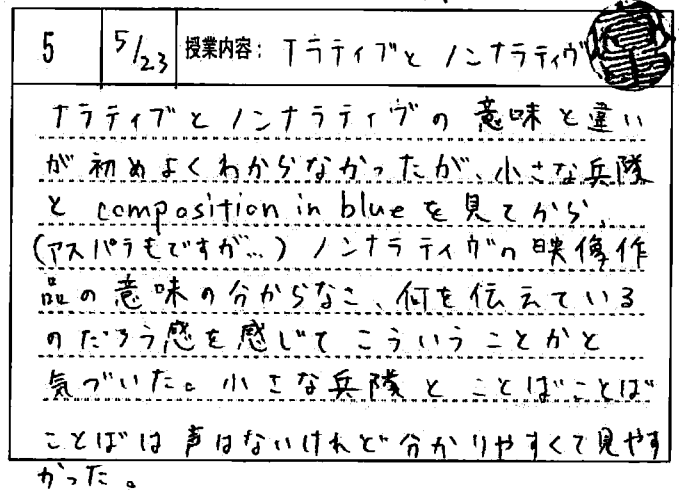 5 5/23 授業内容: ナラティブと ノンナラティヴ
ナラティブと ノンナラティヴの 意味と違い
が 初めよくわからなかったが、小さな兵隊
と composition in blue を見てから、
(アスパラもですが…) ノンナラティヴの映像作
品の意味の分からなこ、何を伝えている
のだろう感を感じて こういうことかと
気づいた。小さな兵隊と ことばことば
ことばは 声はないけれど 分かりやすくて見やす
かった。